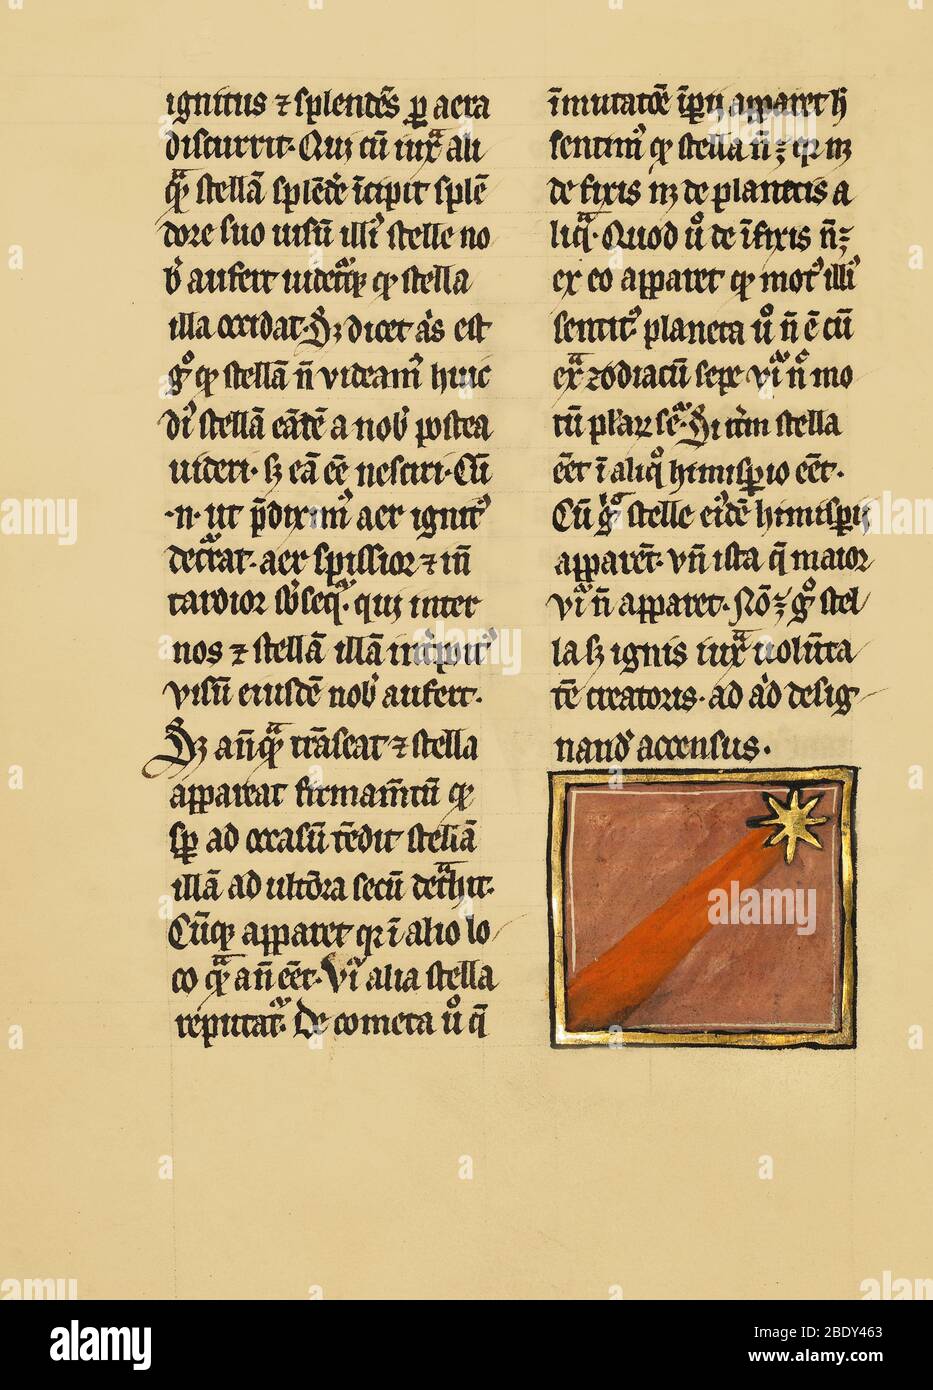 ignitus ⁊ splendēs ꝑ aera
discurrit. Qui cū iuxͣ ali
qͣ stellā splēdē īcipit splē
dore suo uisū illiꝰ stelle no
bꝭ aufert uidetͬqꝫ ꝙ stella
illa occidat. Sꝫ dicet aꝭs est
gͦ ꝙ stellā n̄ videamꝰ huic
diꝰ stellā eādē a nobꝭ postea
uideri. sꝫ eā eē nesciri. Cū
.n. ut p̄diximꝰ aer ignitꝰ
decͬrat. aer spissior ⁊ in̄
tardior sb̄seqͬ. qui inter
nos ⁊ stellā illā intͥpoitꝰ
visū eiusdē nobꝭ aufert.
Sꝫ an̄qͣ trāseat ⁊ stella
appareat firmam̄tū ꝙ
sꝑ ad occasū tēdit stellā
illā ad ultōra secū detͣhit.
Cūqꝫ apparet qꝛ ī alio lo
co qͣ an̄ eēt. Vͬ alia stella
reputatͬ. De cometa uͦ q̄
īmutatōē īpij apparet h̄
sentimꝰ ꝙ stella n̄ ꝫ qꝛ nꝫ
de fixis nꝫ de planetis a
liqͣ. Quod uͦ de īfixis n̄ ꝫ
ex eo apparet ꝙ motꝰ illiꝰ
sentitͬ planeta uͦ n̄ ē cū
exͣ zodiacū sepe vͬ n̄ mo
tū plaꝝ seqͬ. Si itͥm stella
eēt ī aliqͦ himisꝑio eēt.
Cū gͦ stelle eiꝰdē himisꝑij
apparēt. vn̄ ista q̄ maior
vͬ n̄ apparet. Nō ꝫ gͦ stel
la sꝫ ignis iuxͣ uolūta
tē creatoris. ad aꝭd desig
nandͫ accensus.
alamy
Image ID: 2BDY463
www.alamy.com